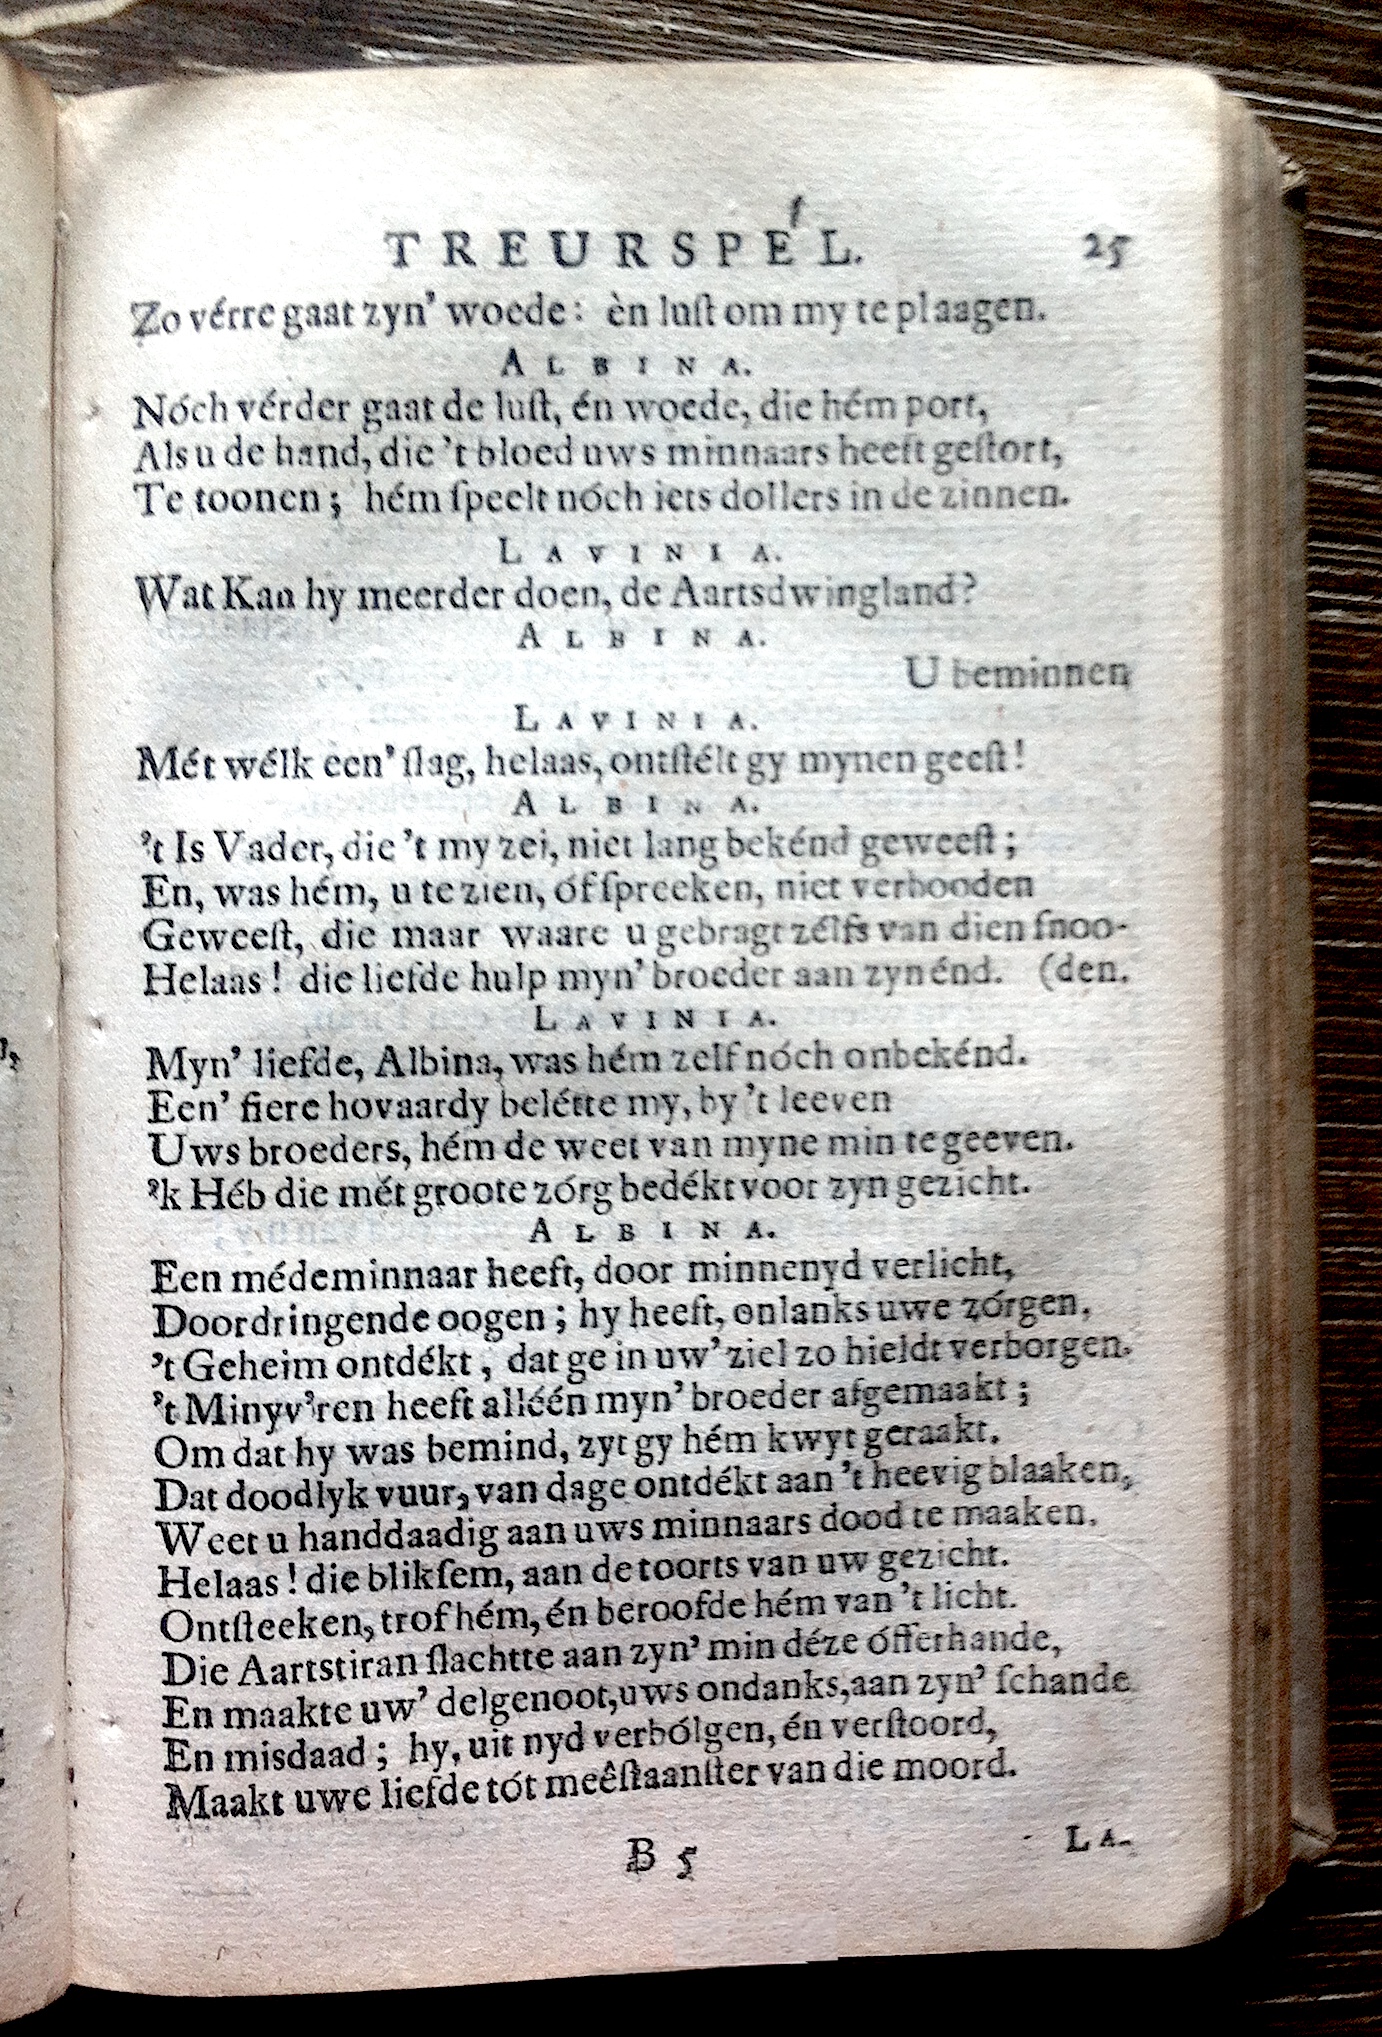 TREURSPÉL. 25
Zo vérre gaat zyn’ woede: èn luſt om my te plaagen.
ALBINA.
Nóch vérder gaat de luſt, én woede, die hém port,
Als u de hand, die ’t bloed uws minnaars heeft geſtort,
Te toonen; hém ſpeelt nóch iets dollers in de zinnen.
LAVINIA.
Wat Kan hy meerder doen, de Aartsdwingland?
ALBINA.
U beminnen
LAVINIA.
Mét wélk een’ ſlag, helaas, ontſtélt gy mynen geeſt!
ALBINA.
’t Is Vader, die ’t my zei, niet lang bekénd geweeſt;
En, was hém, u te zien, óf ſpreeken, niet verbooden
Geweeſt, die maar waare u gebragt zélfs van dien ſnoo-
Helaas! die liefde hulp myn’ broeder aan zyn énd. (den.
LAVINIA.
Myn’ liefde, Albina, was hém zelf nóch onbekénd.
Een’ fiere hovaardy belétte my, by ’t leeven
Uws broeders, hém de weet van myne min te geeven.
’k Héb die mét groote zórg bedékt voor zyn gezicht.
ALBINA.
Een médeminnaar heeft, door minnenyd verlicht,
Doordringende oogen; hy heeft, onlanks uwe zórgen,
’t Geheim ontdékt, dat ge in uw’ ziel zo hieldt verborgen.
’t Minyv’ren heeft alléén myn’ broeder afgemaakt;
Om dat hy was bemind, zyt gy hém kwyt geraakt.
Dat doodlyk vuur, van dage ontdékt aan ’t heevig blaaken,
Weet u handdaadig aan uws minnaars dood te maaken.
Helaas! die blikſem, aan de toorts van uw gezicht.
Ontſteeken, trof hém, én beroofde hém van ’t licht.
Die Aartstiran ſlachtte aan zyn’ min déze óffethande,
En maakte uw’ delgenoot,uws ondanks,aan zyn’ ſchande
En misdaad; hy, uit nyd verbólgen, én verſtoord,
Maakt uwe liefde tót meêſtaanſter van die moord.
B 5 LA-